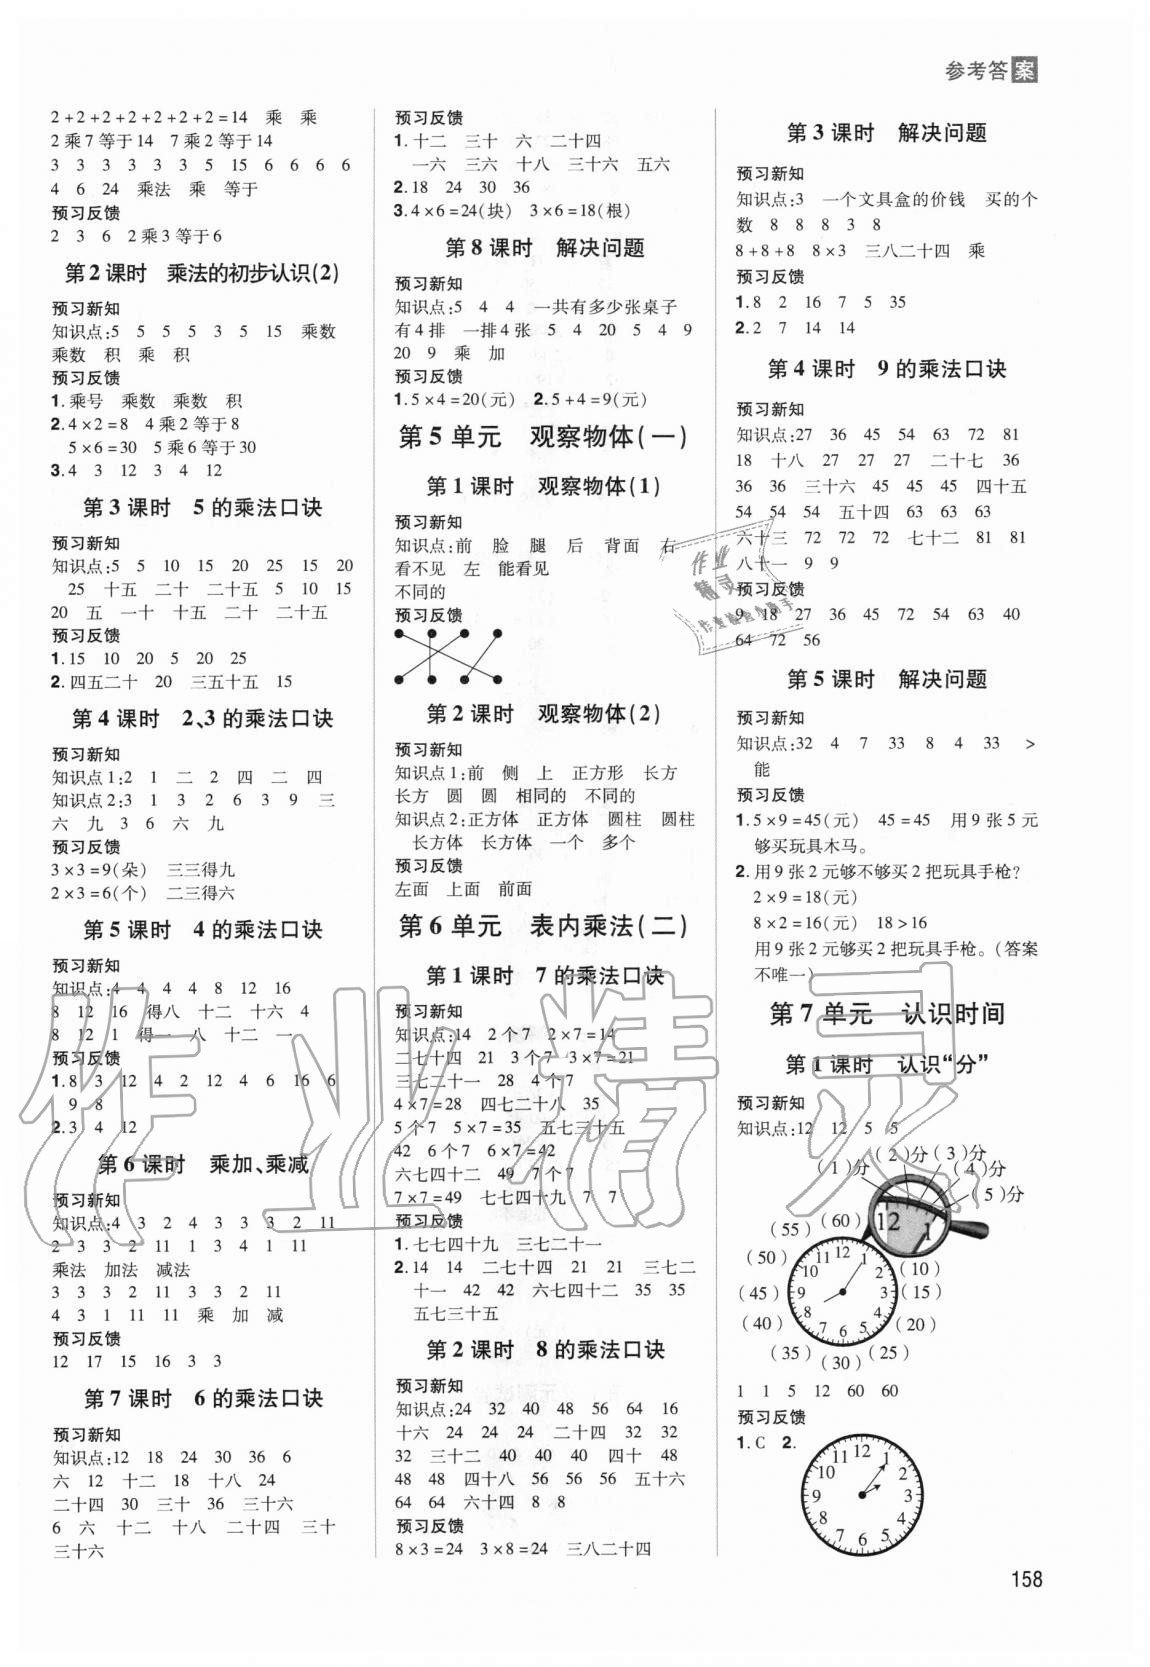 参考答案
2+2+2+2+2+2+2=14 乘 乘
2乘7等于14 7乘2等于14
3 3 3 3 3 3 5 15 6 6 6 6
4 6 24 乘法 乘 等于
预习反馈
2 3 6 2乘3等于6
第2课时 乘法的初步认识(2)
预习新知
知识点:5 5 5 5 3 5 15 乘数
乘数 积 乘 积
预习反馈
1.乘号 乘数 乘数 积
2.4×2=8 4乘2等于8
5×6=30 5乘6等于30
3.4 3 12 3 4 12
第3课时 5的乘法口诀
预习新知
知识点:5 5 10 15 20 25 15 20
25 十五 二十 二十五 5 10 15
20 五 一十 十五 二十 二十五
预习反馈
1.15 10 20 5 20 25
2.四五二十 20 三五十五 15
第4课时 2、3的乘法口诀
预习新知
知识点1:2 1 二 2 四 二 四
知识点2:3 1 3 2 6 3 9 三
六 九 3 6 六 九
预习反馈
3×3=9(朵) 三三得九
2×3=6(个) 二三得六
第5课时 4的乘法口诀
预习新知
知识点:4 4 4 4 8 12 16
8 12 16 得八 十二 十六 4
8 12 1 得一 八 十二 一
预习反馈
1.8 3 12 4 2 12 4 6 16 6
9 8
2.3 4 12
第6课时 乘加、乘减
预习新知
知识点:4 3 2 4 3 3 3 2 11
2 3 3 2 11 1 3 4 1 11
乘法 加法 减法
3 3 3 2 11 3 3 2 11
4 3 1 11 11 乘 加 减
预习反馈
12 17 15 16 3 3
第7课时 6的乘法口诀
预习新知
知识点:12 18 24 30 36 6
六 12 十二 18 十八 24
二十四 30 三十 36 三十六
6 六 十二 十八 二十四 三十
三十六
预习反馈
1.十二 三十 六 二十四
一六 三六 十八 三十六 五六
2.18 24 30 36
3.4×6=24(块) 3×6=18(根)
第8课时 解决问题
预习新知
知识点:5 4 4 一共有多少张桌子
有4排 一排4张 5 4 20 5 4 9
20 9 乘 加
预习反馈
1.5×4=20(元) 2.5+4=9(元)
第5单元 观察物体(一)
第1课时 观察物体(1)
预习新知
知识点:前 脸 腿 后 背面 右
看不见 左 能看见
不同的
预习反馈
第2课时 观察物体(2)
预习新知
知识点1:前 侧 上 正方形 长方
长方 圆 圆 相同的 不同的
知识点2:正方体 正方体 圆柱 圆柱
长方体 长方体 一个 多个
预习反馈
左面 上面 前面
第6单元 表内乘法(二)
第1课时 7的乘法口诀
预习新知
知识点:14 2个7 2×7=14
二七十四 21 3个7 3×7=21
三七二十一 28 4个7
4×7=28 四七二十八 35
5个7 5×7=35 五七三十五
42 6个7 6×7=42
六七四十二 49 7个7
7×7=49 七七四十九 7 7
预习反馈
1.七七四十九 三七二十一
2.14 14 二七十四 21 21 三七二
十一 42 42 六七四十二 35 35
五七三十五
第2课时 8的乘法口诀
预习新知
知识点:24 32 40 48 56 64 16
十六 24 24 24 二十四 32 32
32 三十二 40 40 40 四十 48
48 48 四十八 56 56 56 五十六
64 64 六十四 8 8
预习反馈
8×3=24 3×8=24 三八二十四
第3课时 解决问题
预习新知
知识点:3 一个文具盒的价钱 买的个
数 8 8 8 3 8
8+8+8 8×3 三八二十四 乘
预习反馈
1.8 2 16 7 5 35
2.2 7 14 14
第4课时 9的乘法口诀
预习新知
知识点:27 36 45 54 63 72 81
18 十八 27 27 27 二十七 36
36 36 三十六 45 45 45 四十五
54 54 54 五十四 63 63 63
六十三 72 72 72 七十二 81 81
八十一 9 9
预习反馈
9 18 27 36 45 72 54 63 40
64 72 56
第5课时 解决问题
预习新知
知识点:32 4 7 33 8 4 33 >
能
预习反馈
1.5×9=45(元) 45=45 用9张5元
够买玩具木马。
2.用9张2元够不够买2把玩具手枪?
2×9=18(元)
8×2=16(元) 18>16
用9张2元够买2把玩具手枪。(答案
不唯一)
第7单元 认识时间
第1课时 认识“分”
预习新知
知识点:12 12 5 5
(1)分 (2)分 (3)分 (4)分 (5)分
(60) (55) (50) (45) (40) (35) (30) (25) (20) (15) (10)
12 1
12 1 2 3 4 5 6 7 8 9 10 11
1 1 5 12 60 60
预习反馈
1.C 2.
12 1 2 3 4 5 6 7 8 9 10 11
158
作业精灵
作业
精灵